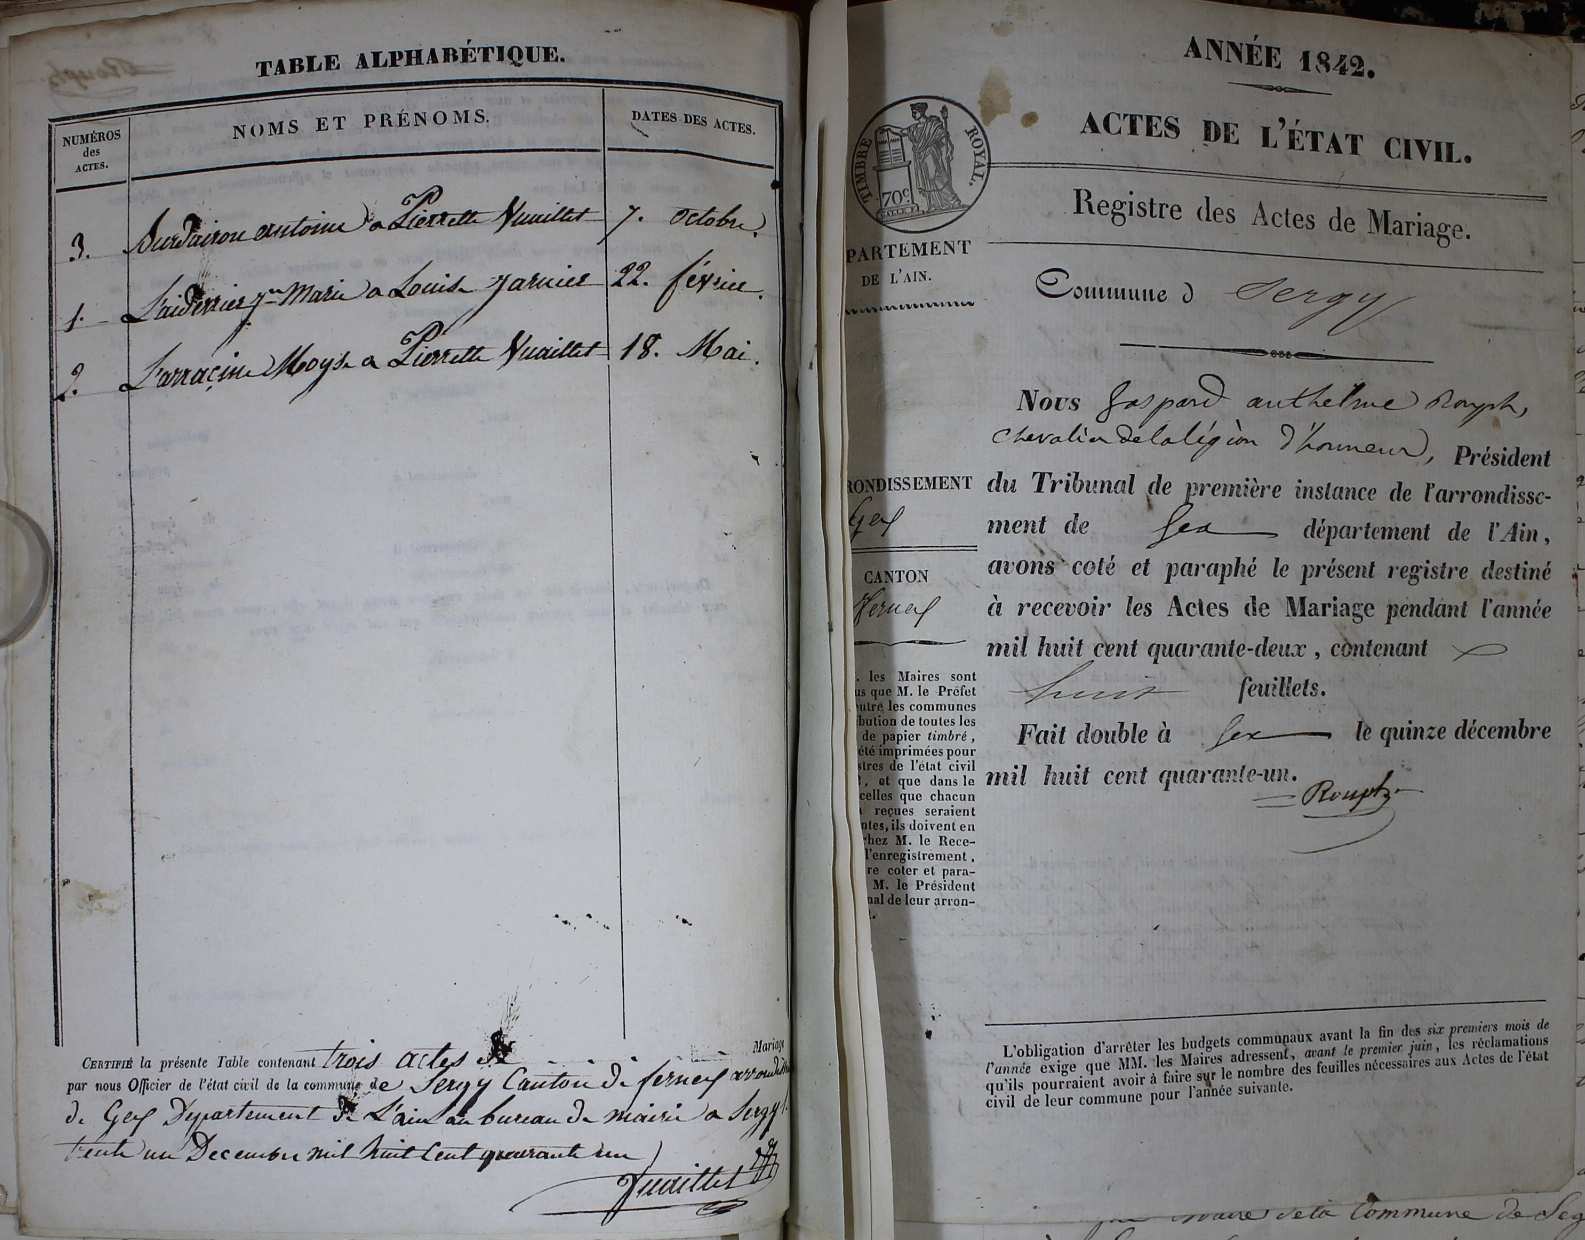 TABLE ALPHABÉTIQUE.
NUMÉROS
des
ACTES.
NOMS ET PRÉNOMS.
DATES DES ACTES.
3. antoine a Pierrette Vuaillet 7. octobre.
1. Marie a Louise 22. février.
2. Moyse a Pierrette Vuaillet 18. Mai.
Mariage
CERTIFIÉ la présente Table contenant trois actes de
par nous Officier de l'état civil de la commune de Sergy Canton de ferney
de Gex Departement de L'ain au bureau de mairie a Sergy
trente un Decembre mil huit Cent quarante un
Vuaillet
ANNÉE 1842.
ACTES DE L'ÉTAT CIVIL.
TIMBRE ROYAL.
70c.
Registre des Actes de Mariage.
PARTEMENT
DE L'AIN.
Commune d Sergy
Nous Gaspard anthelme Rouph,
chevalier de la légion d'honneur, Président
RONDISSEMENT
du Tribunal de première instance de l'arrondisse-
Gex
ment de Gex département de l'Ain,
avons coté et paraphé le présent registre destiné
CANTON
ferney
à recevoir les Actes de Mariage pendant l'année
mil huit cent quarante-deux, contenant
huit feuillets.
Fait double à Gex le quinze décembre
mil huit cent quarante-un.
Rouph
. les Maires sont
us que M. le Préfet
utre les communes
ibution de toutes les
de papier timbré,
été imprimées pour
stres de l'état civil
, et que dans le
celles que chacun
reçues seraient
ntes, ils doivent en
chez M. le Rece-
l'enregistrement,
re coter et para-
M. le Président
nal de leur arron-
L'obligation d'arrêter les budgets communaux avant la fin des six premiers mois de
l'année exige que MM. les Maires adressent, avant le premier juin, les réclamations
qu'ils pourraient avoir à faire sur le nombre des feuilles nécessaires aux Actes de l'état
civil de leur commune pour l'année suivante.
Maire de la Commune de Seg